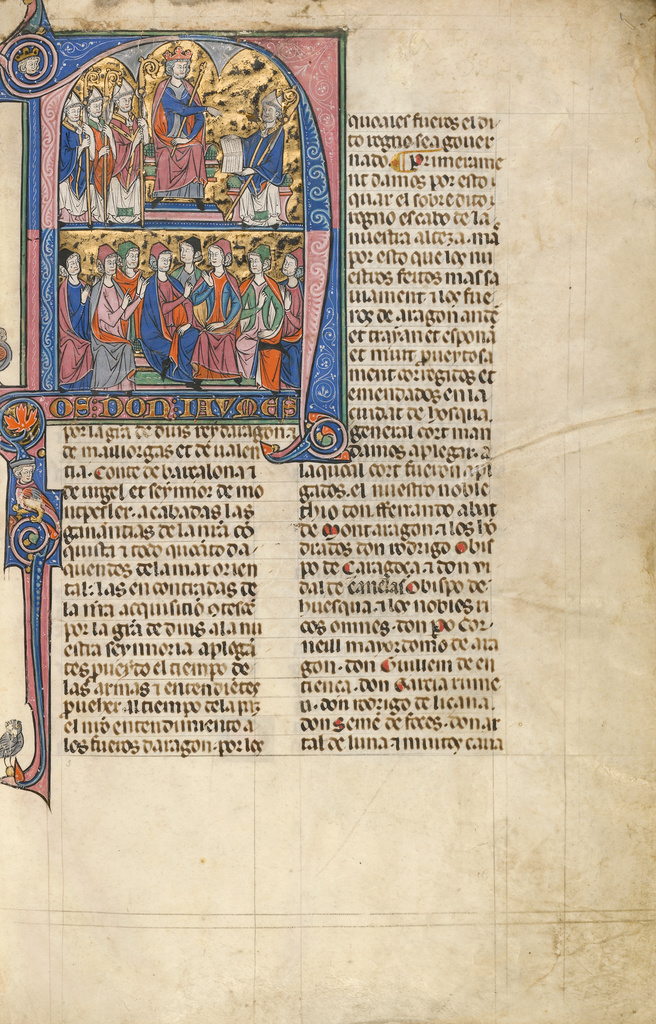 NOS DON JAVMES
por la gra de dius rey daragon z
de mayllorgas et de ualen
tia. Conte de barçalona z
de urgel et seynnor de mo
ntpesler. acabadas las
ganantias de la nra co
quista z todo quanto da
quendes de la mar orien
tal. las encontradas de
la nra acquisitio
por la gra de dius a la nu
estra seynnoria aplega
tes pueyto el tiempo de
las armas z entendietes
pueher. al tiempo de la paz
el nro entendimiento a
los fueros daragon. por los
quoales fueros el di
to regno sea gouer
nado. Primerame
nt damos por esto
quar el sobredito
regno es cabo de la
nuestra alteza. ma
por esto que los nu
estros feitos
z los fue
ros de aragon ante
et trayan et espona
et muit pueytosa
ment corregitos et
emendados en la
ciudat de hosqua.
general cort man
damos aplegar. a
la qual cort fueron apl
gados. el nuestro noble
thio don fferrando abat
de Montaragon z los ho
drados don rodrigo Obis
po de Caragoça z don vi
dal de canellas Obispo de
huesqua. z los nobles ri
cos omnes. don Po Cor
neill mayordomo de ara
gon. don Guillem de en
tiença. don Garcia rume
u. don rodrigo de liçana.
don Semé de foces. don ar
tal de luna z muitos caua